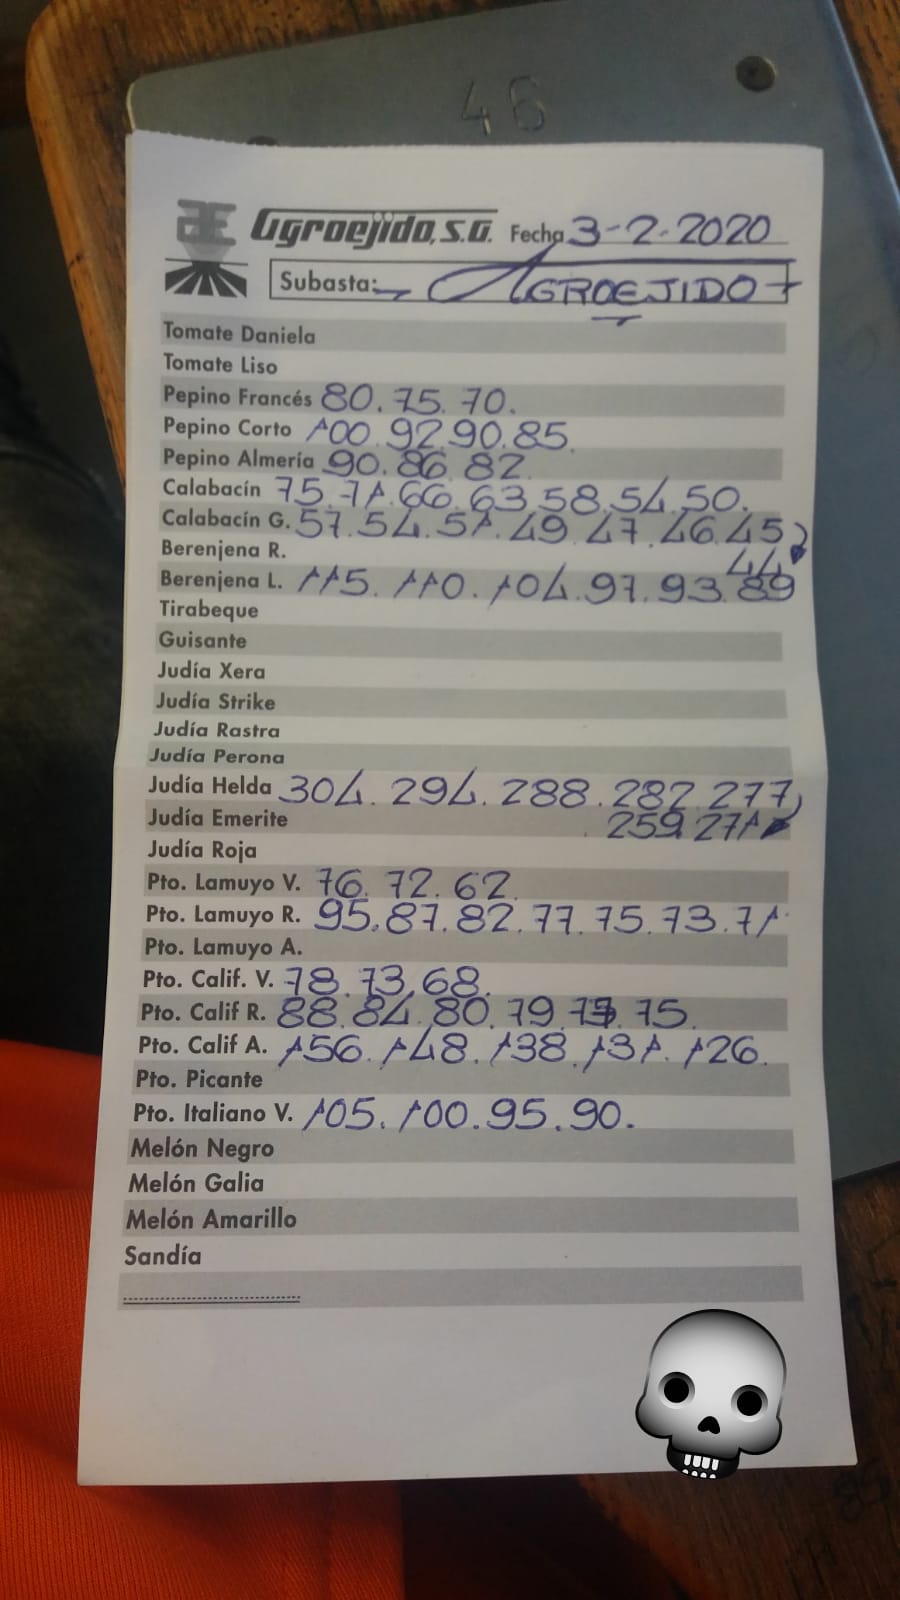 46
AE Agroejido, S.A. Fecha 3-2-2020
Subasta: AGROEJIDO
Tomate Daniela
Tomate Liso
Pepino Francés 80. 75. 70.
Pepino Corto 100. 92. 90. 85.
Pepino Almería 90. 86. 82
Calabacín 75. 71. 66. 63. 58. 54. 50.
Calabacín G. 57. 54. 51. 49. 47. 46. 45
Berenjena R. 44
Berenjena L. 115. 110. 104. 97. 93. 89
Tirabeque
Guisante
Judía Xera
Judía Strike
Judía Rastra
Judía Perona
Judía Helda 304. 294. 288. 282. 277
Judía Emerite 259. 271
Judía Roja
Pto. Lamuyo V. 76. 72. 62
Pto. Lamuyo R. 95. 87. 82. 77. 75. 73. 71
Pto. Lamuyo A.
Pto. Calif. V. 78. 73. 68.
Pto. Calif R. 88. 84. 80. 79. 75.
Pto. Calif A. 156. 148. 138. 131. 126.
Pto. Picante
Pto. Italiano V. 105. 100. 95. 90.
Melón Negro
Melón Galia
Melón Amarillo
Sandía